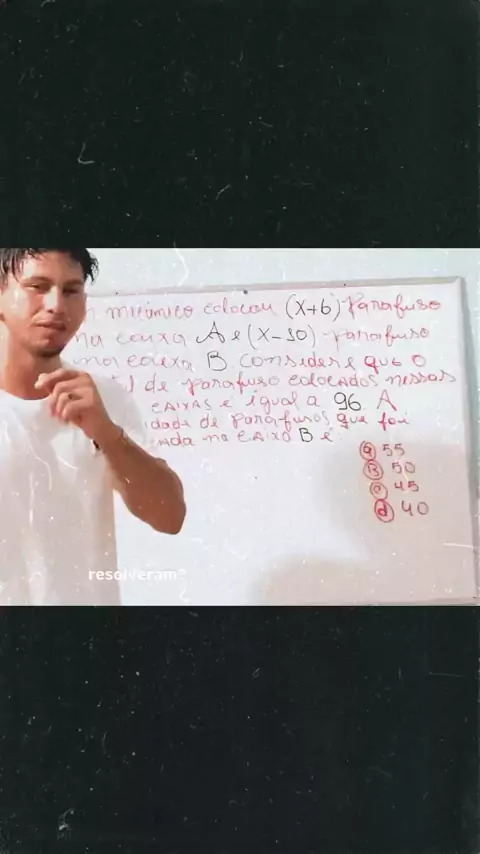 mecânico colocou (x+6) parafuso
na caixa A e (x-10) parafuso
na caixa B. Considere que o
de parafuso colocados nessas
caixas e igual a 96. A
de parafusos que foi
na caixa B é
a 55
B 50
c 45
d 40
resolveram